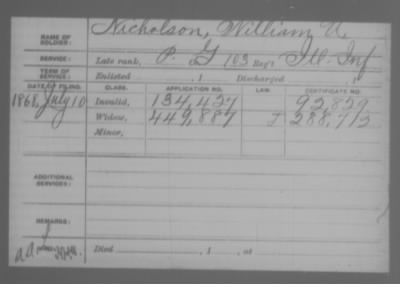 NAME OF SOLDIER: Nicholson, William N.
SERVICE: Late rank, P. G 103 Reg't Ill. Inf
TERM OF SERVICE: Enlisted , 1 Discharged , 1
DATE OF FILING. CLASS. APPLICATION NO. LAW. CERTIFICATE NO.
1868, July 10 Invalid, 134,427 92,829
Widow, 449,887 J 288,713
Minor,
ADDITIONAL SERVICES:
REMARKS:
Died , 1 , at